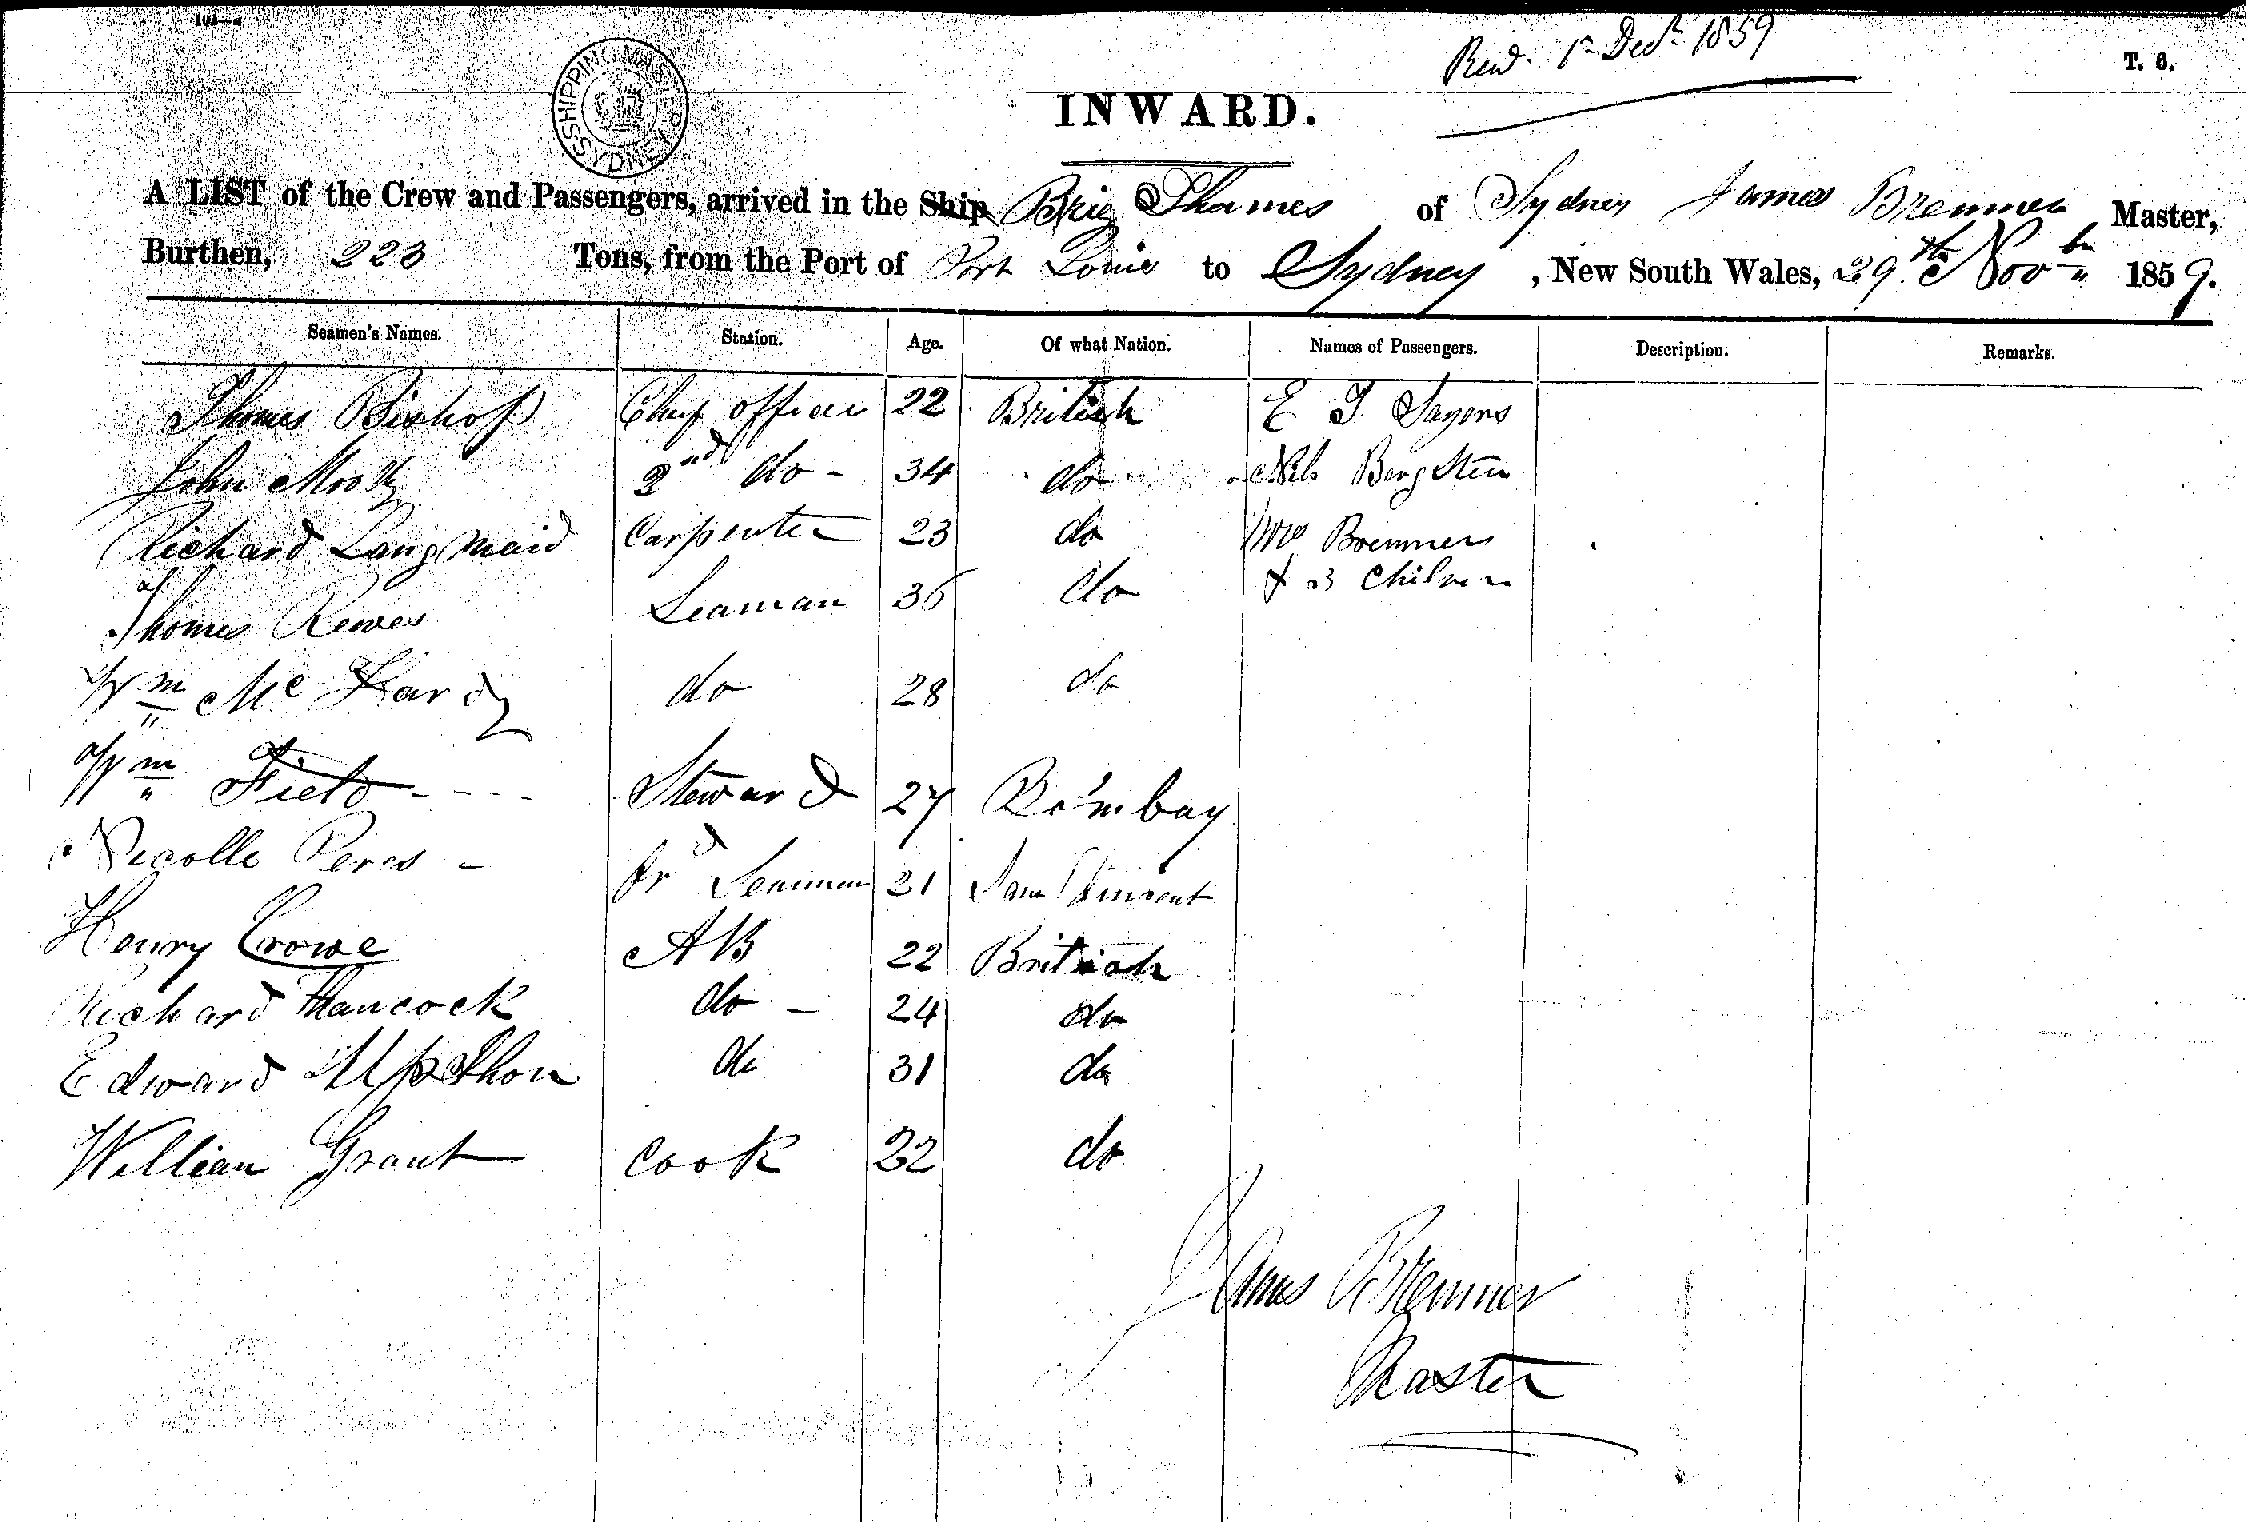 Recd. 1st Decr 1859
T. 6.
SHIPPING MASTER SYDNEY
INWARD.
A LIST of the Crew and Passengers, arrived in the Ship Brig Thames of Sydney James Bremner Master,
Burthen, 223 Tons, from the Port of Port Louis to Sydney, New South Wales, 29th Novbr 1859.
Seamen's Names. Station. Age. Of what Nation. Names of Passengers. Description. Remarks.
Thomas Bishop Chief officer 22 British E T Sayers
John 2nd do - 34 do Nils Bergsten
Richard Langmaid Carpenter 23 do Mrs Bremner
Thomas Rewes Seaman 36 do & 3 Children
Wm Mc Hardy do 28 do
Wm Field - - - - Steward 27 Bombay
Nicolle Peres - Or Seaman 21 Vincent
Henry Crowe AB 22 British
Richard Hancock do - 24 do
Edward Upthon do 31 do
William Grant Cook 22 do
James Bremner
Master